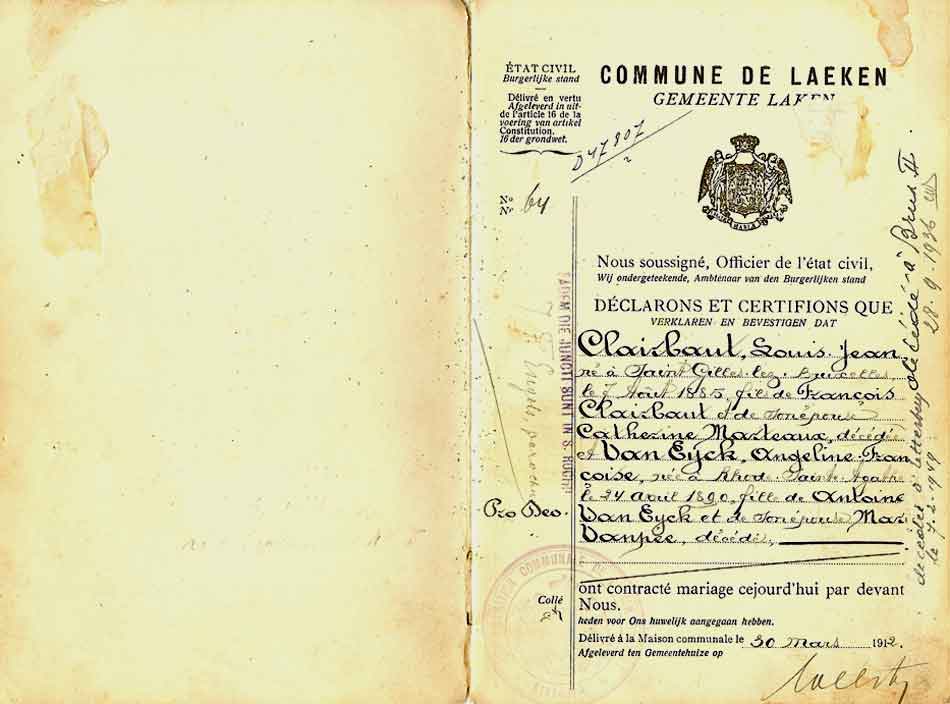 ÉTAT CIVIL
Burgerlijke stand
Délivré en vertu
Afgeleverd in uit-
de l'article 16 de la
voering van artikel
Constitution.
16 der grondwet.
COMMUNE DE LAEKEN
GEMEENTE LAKEN
047807
No
Nr 64
Nous soussigné, Officier de l'état civil,
Wij ondergeteekende, Ambtenaar van den Burgerlijken stand
DÉCLARONS ET CERTIFIONS QUE
VERKLAREN EN BEVESTIGEN DAT
Clairbaut, Louis Jean
né à Saint Gilles-lez-Bruxelles,
le 7 Août 1885, fils de François
Clairbaut et de son épouse
Catherine Marteaux, décédée
et Van Eyck, Angeline Fran
çoise, née à Rhode-Sainte-Agathe
le 24 avril 1890, fille de Antoine
Van Eyck et de son épouse Mari
Vanpée, décédés,
Pro Deo.
ont contracté mariage cejourd'hui par devant
Nous.
heden voor Ons huwelijk aangegaan hebben.
Délivré à la Maison communale le 30 Mars 1912.
Afgeleverd ten Gemeentehuize op
Collé
EADEM DIE JUNCTI SUNT IN S. ROCHI
décédé à Brux II
28-9-1936
le 7-2-1949